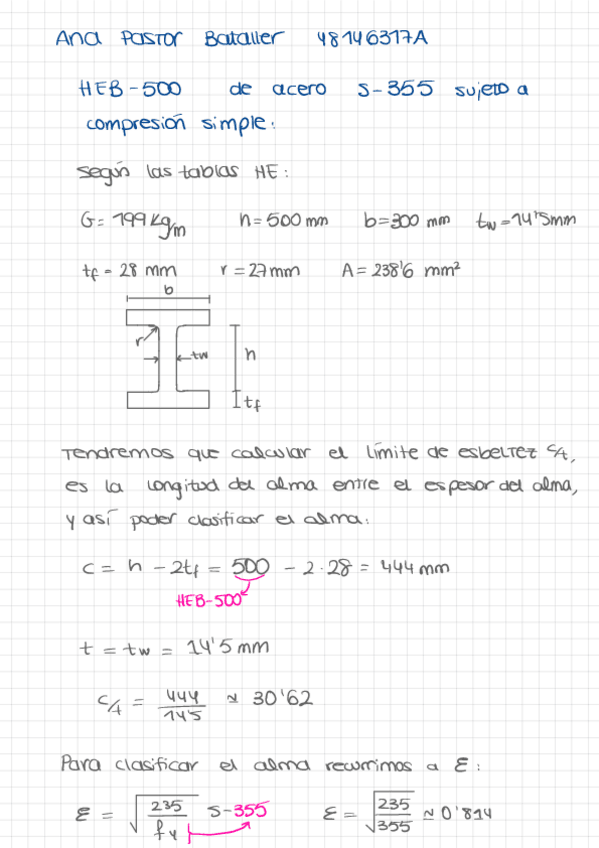 Ana Pastor Bataller 48146317A
HEB-500 de acero S-355 sujeto a
compresión simple:
Según las tablas HE:
G= 199 kg/m h=500 mm b=300 mm tw=14'5mm
tf = 28 mm r=27mm A=238'6 mm²
b
r
tw
h
tf
Tendremos que calcular el límite de esbeltez c/t,
es la longitud del alma entre el espesor del alma,
y así poder clasificar el alma:
c = h - 2tf = 500 - 2·28 = 444 mm
HEB-500
t = tw = 14'5 mm
c/t = 444/14'5 ≃ 30'62
Para clasificar el alma recurrimos a ε:
ε = √(235/fy) S-355 ε = √(235/355) ≃ 0'814